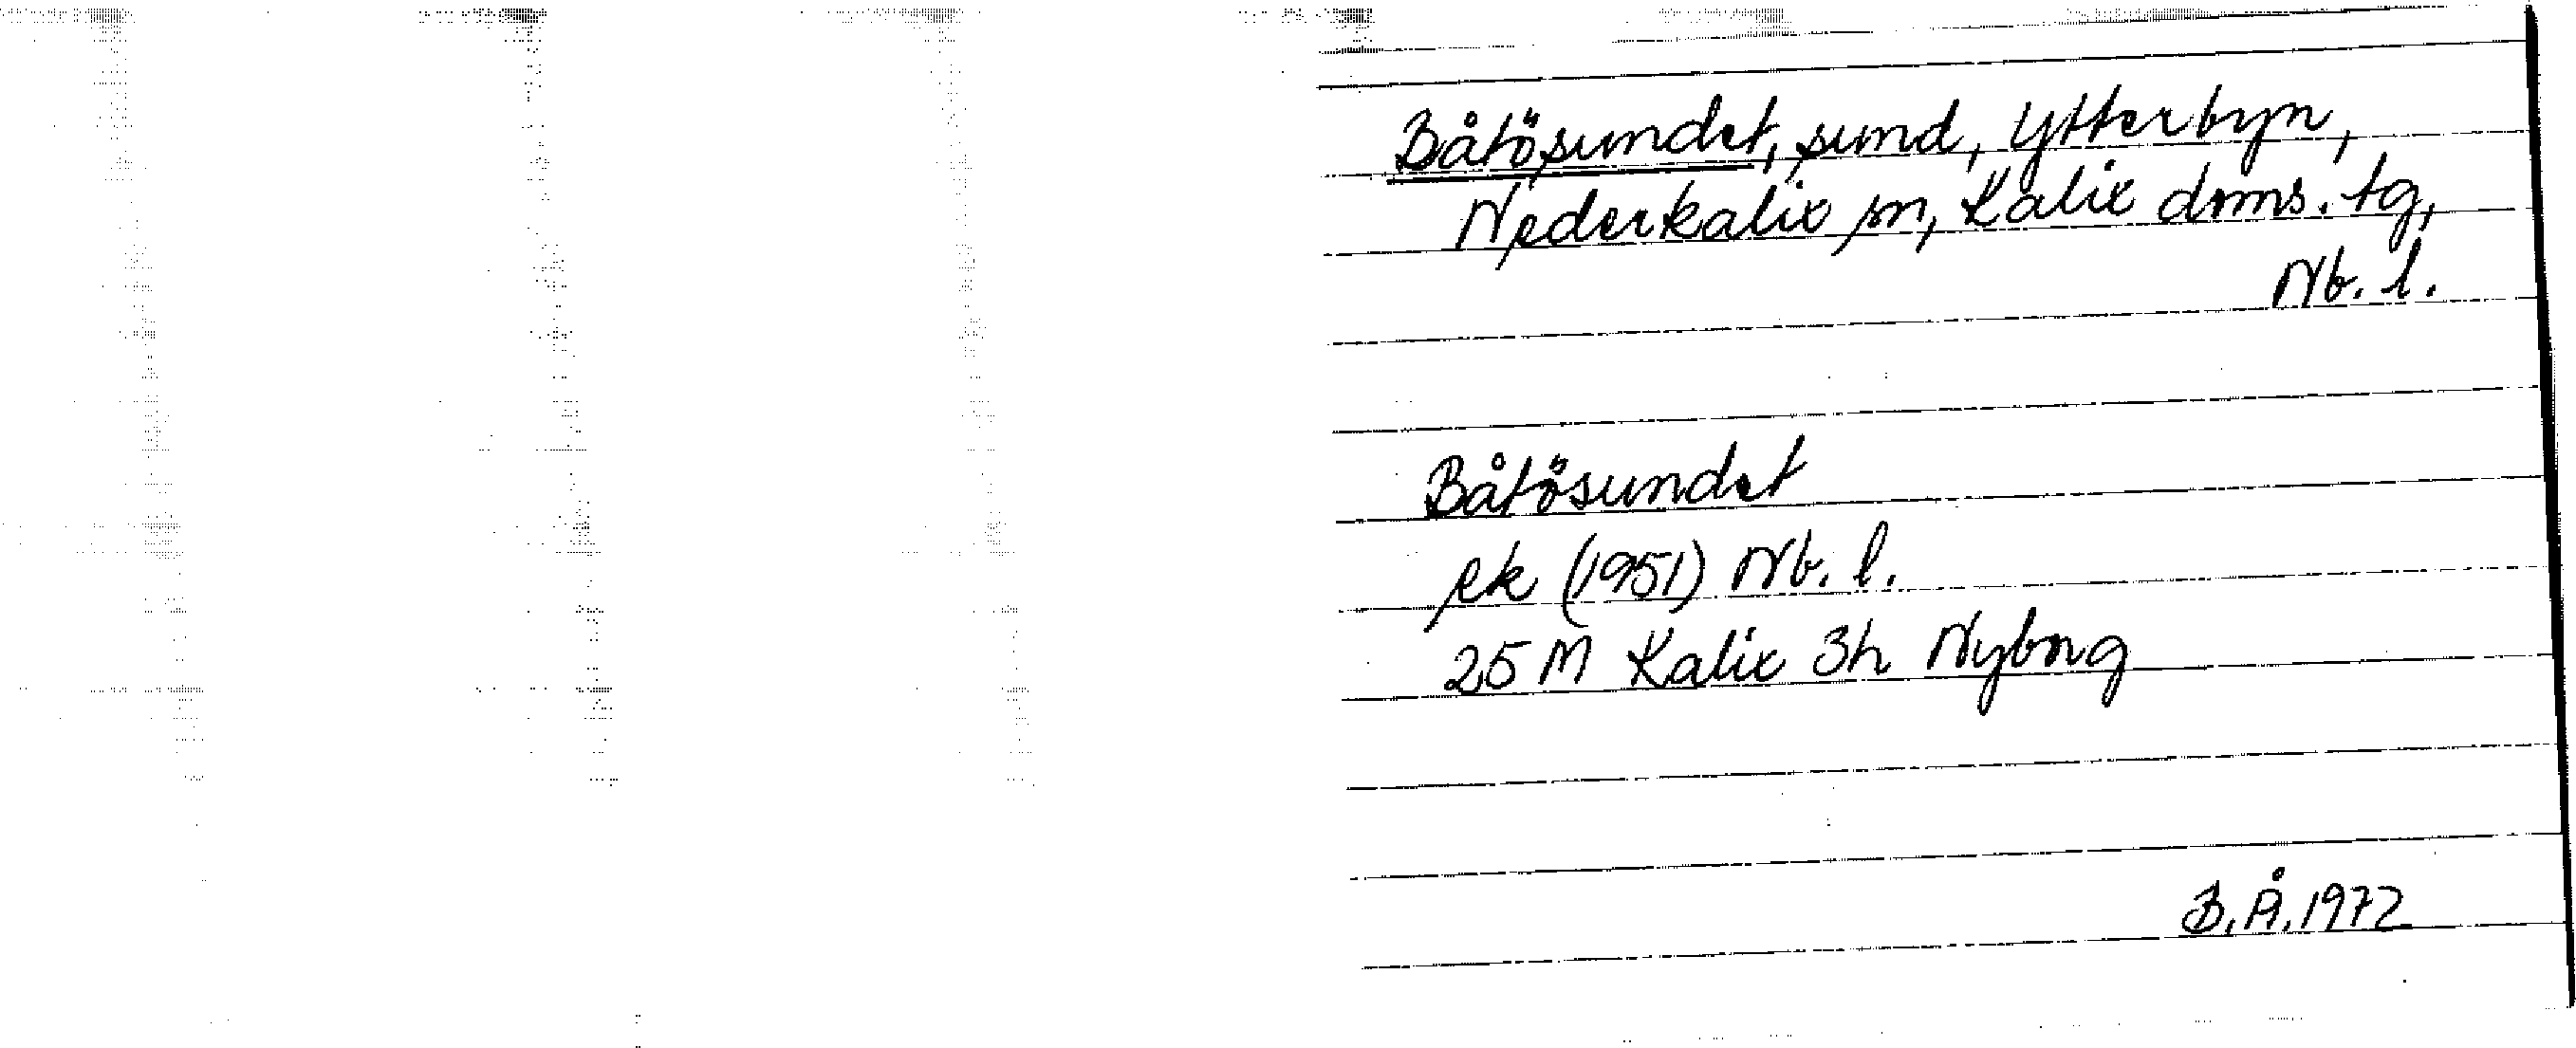 Båtösundet, sund, Ytterbyn,
Nederkalix sn, Kalix doms. tg,
Nb. l.
Båtösundet
ek (1951) Nb. l.
25 M Kalix 3h Nyborg
B.Å. 1972